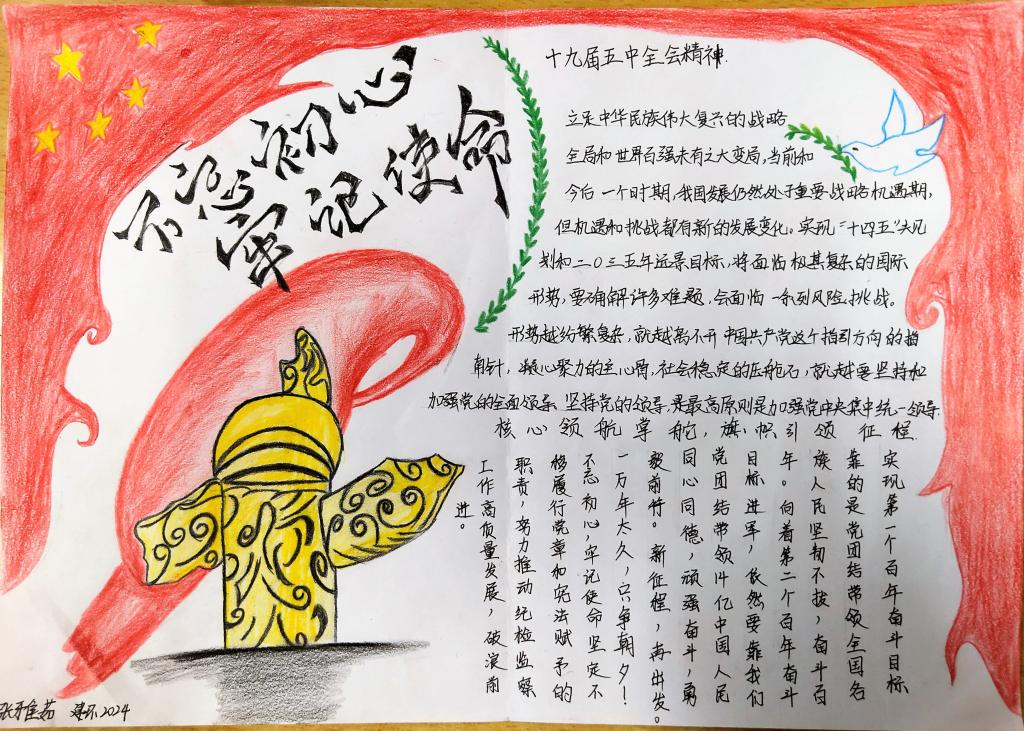 不忘初心
牢记使命
十九届五中全会精神.
立足中华民族伟大复兴的战略
全局和世界百强未有之大变局,当前和
今后一个时期,我国发展仍然处于重要战略机遇期,
但机遇和挑战都有新的发展变化。实现“十四五”规
划和二〇三五年远景目标,将面临极其复杂的国际
形势,要确解许多难题,会面临一系列风险挑战。
形势越纷繁复杂,就越离不开中国共产党这个指引方向的指
南针,凝心聚力的主心骨,社会稳定的压舱石,就越要坚持和
加强党的全面领导.坚持党的领导,最高原则是加强党中央集中统一领导.
核心领航掌舵,旗帜引领征程.
实现第一个百年奋斗目标
靠的是党团结带领全国各
族人民坚韧不拔,奋斗百
年。向着第二个百年奋斗
目标进军,依然要靠我们
党团结带领14亿中国人民
同心同德,顽强奋斗,勇
毅前行。新征程,再出发。
一万年太久,只争朝夕!
不忘初心,牢记使命坚定不
移履行党章和宪法赋予的
职责,努力推动纪检监察
工作高质量发展,破浪前
进。
张雅茹 建环2024